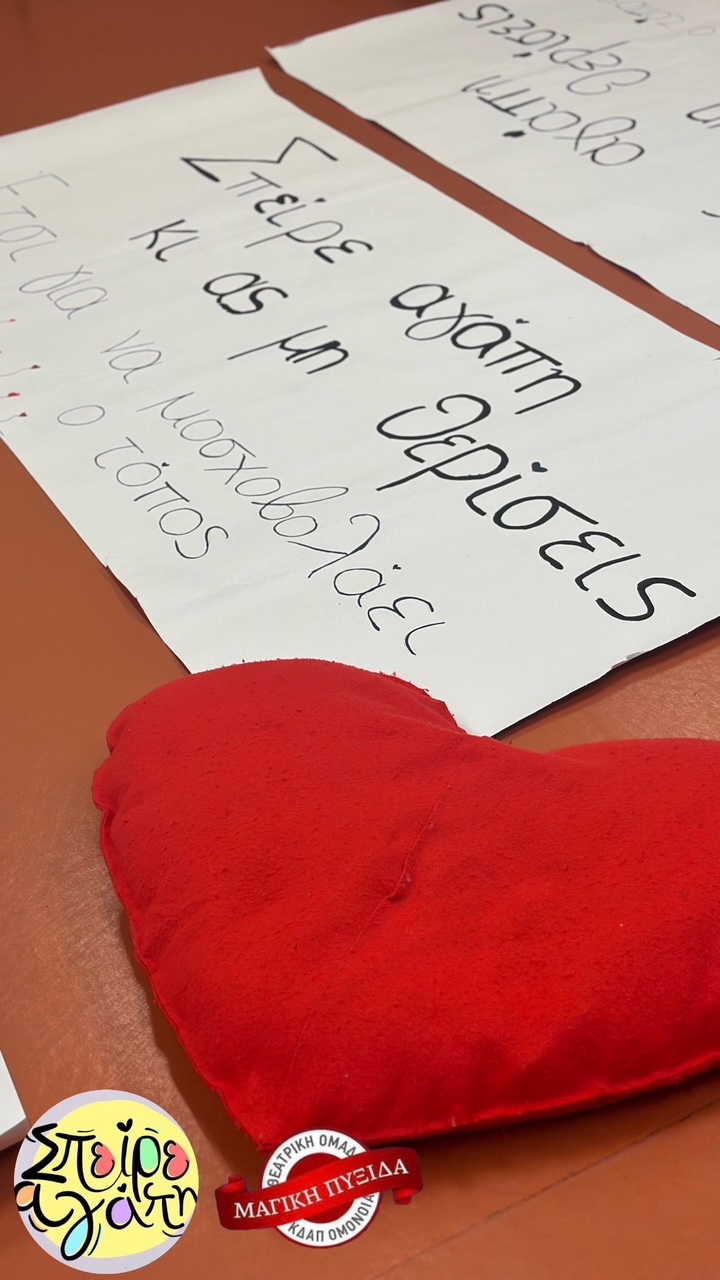 Σπείρε αγάπη
κι ας μη θερίσεις
Έτσι για να μοσχοβολάει
ο τόπος
αγάπη
θερίσεις
Σπείρε
αγάπη
ΘΕΑΤΡΙΚΗ ΟΜΑΔ
ΜΑΓΙΚΗ ΠΥΞΙΔΑ
ΚΔΑΠ ΟΜΟΝΟΙΑ